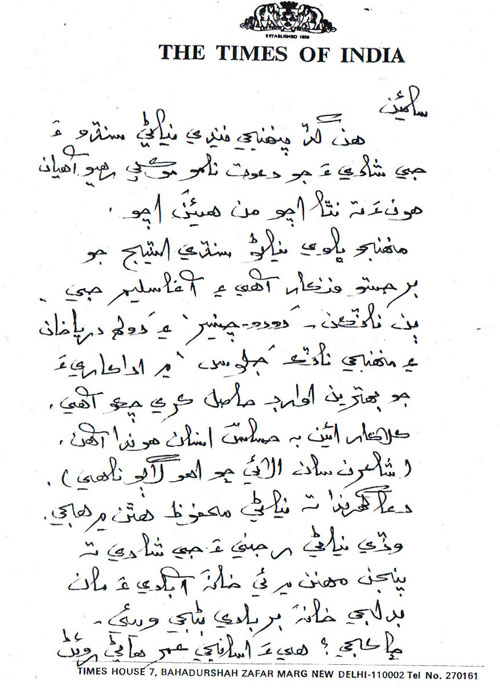 ESTABLISHED 1838
THE TIMES OF INDIA
سائين
هن گڏ پنهنجي ننڍي نياڻي سنڌوءَ
جي شاديءَ جو دعوت نامو موڪلي رهيو آهيان
هونءَ نه ته اچو من هيئن اچو.
منهنجو نياڻو سنڌي اسٽيج جو
برجستو فنڪار آهي ۽ آغا سليم جي
ٻن ناٽڪن - دودو-چنيسر ۽ دولهه دريا خان
۽ منهنجي ناٽڪ جلوس ۾ اداڪاريءَ
جو بهترين اوارڊ حاصل ڪري چڪو آهي.
ڪلاڪار ائين به حساس انسان هوندا آهن.
(شاعرن سان الائي ڇو اهو لاڳو ناهي).
دعا گهرندا ته نياڻي محفوظ هٿن ۾ هجي.
وڏي نياڻي جي شادي ته
پنجن مهنن ۾ ئي خانه آباديءَ مان
بدلجي خانه بربادي بڻجي ويئي.
ڇا ڪجي؟ هيءَ اسانجي عمر هاڻي
TIMES HOUSE 7, BAHADURSHAH ZAFAR MARG NEW DELHI-110002 Tel No. 270161